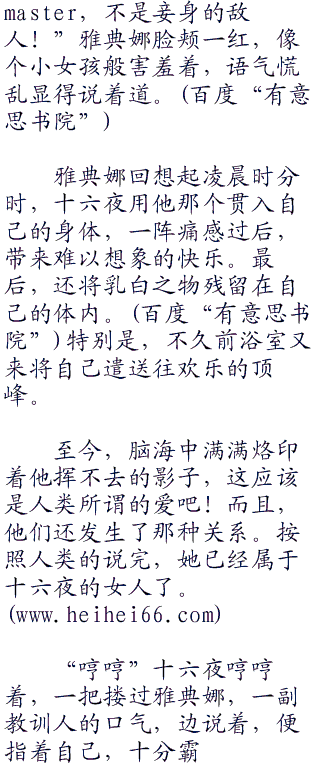 master，不是妾身的敌
人！”雅典娜脸颊一红，像
个小女孩般害羞着，语气慌
乱显得说着道。(百度“有意
思书院”)
雅典娜回想起凌晨时分
时，十六夜用他那个贯入自
己的身体，一阵痛感过后，
带来难以想象的快乐。最
后，还将乳白之物残留在自
己的体内。(百度“有意思书
院”)特别是，不久前浴室又
来将自己遣送往欢乐的顶
峰。
至今，脑海中满满烙印
着他挥不去的影子，这应该
是人类所谓的爱吧！而且，
他们还发生了那种关系。按
照人类的说完，她已经属于
十六夜的女人了。
(www.heihei66.com)
“哼哼”十六夜哼哼
着，一把搂过雅典娜，一副
教训人的口气，边说着，便
指着自己，十分霸